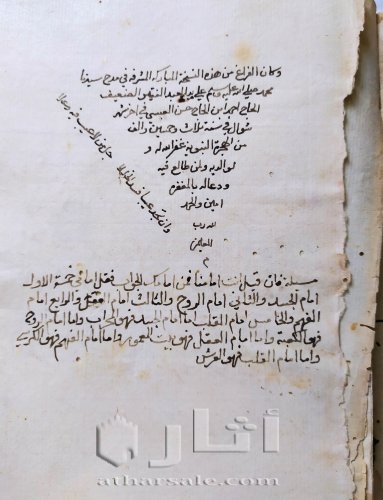 وكان الفراغ من هذه النسخة المباركة المشرفة في مدح سيدنا
محمد صلى الله عليه وسلم على يد العبد الفقير الضعيف
الحاج احمد ابن الحاج حسن العيسي في اخر شهر
شوال في سنة ثلاث وخمسين والف
من الهجرة النبوية غفر الله له و
لوالديه ولمن طالع فيه
ودعا له بالمغفره
امين والحمد
لله رب
العالمين
م
وان تجد عيبا فسد الخللا
جل من لا عيب فيه وعلا
مسئلة فان قيل انت امامنا فمن امامك المحراب فقل امامي خمسة الاول
امام الجسد والثاني امام الروح والثالث امام العقل والرابع امام
الفهم والخامس امام القلب اما امام الجسد فهو المحراب واما امام الروح
فهو الكعبة واما امام العقل فهو بيت المعمور واما امام الفهم فهو الكرسي
واما امام القلب فهو العرش
أثار
atharsale.com